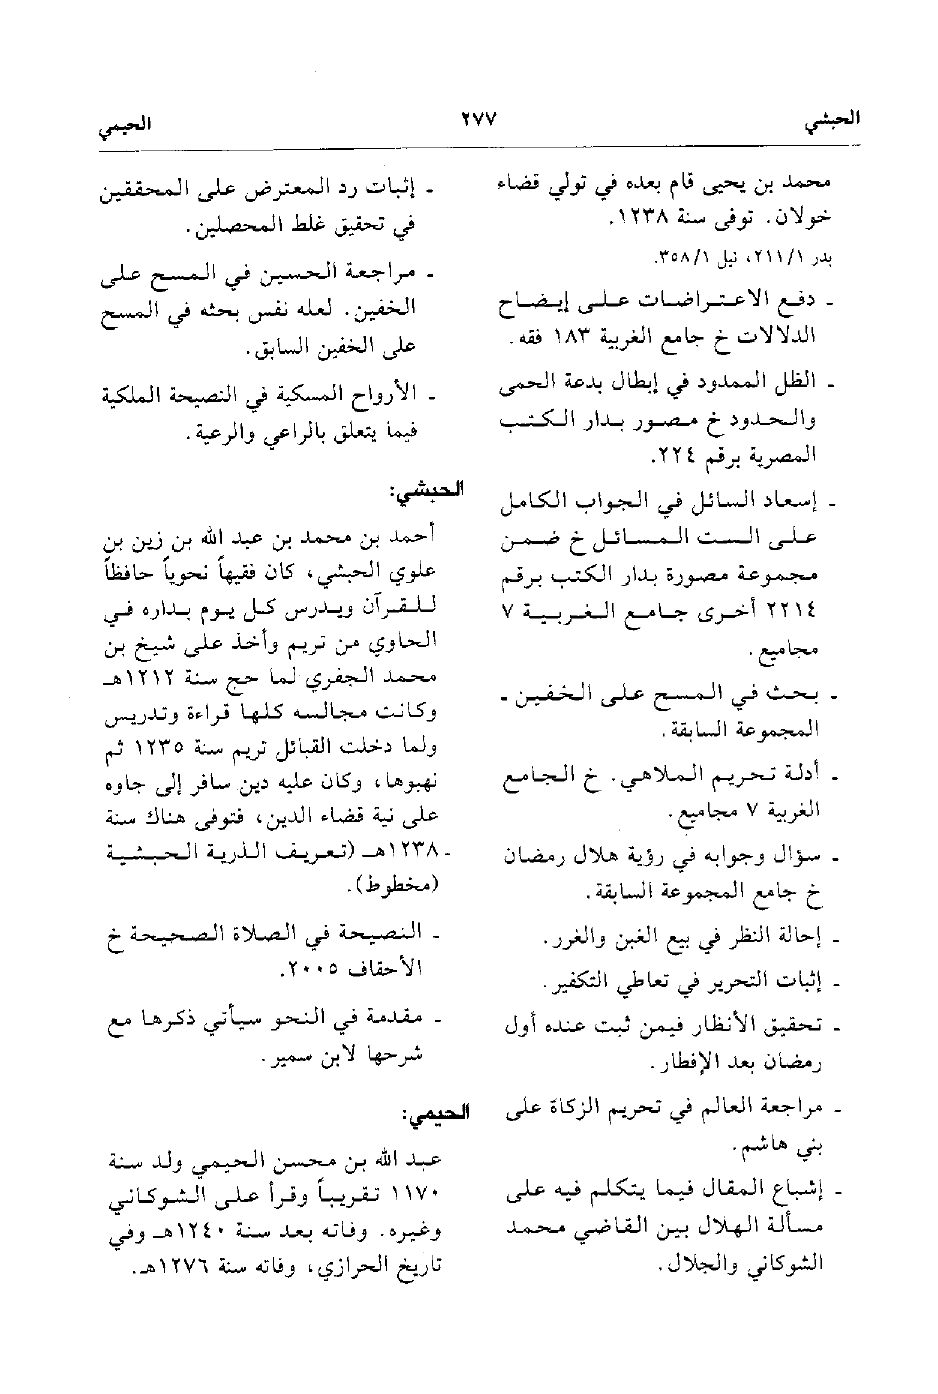 الحبشي
٢٧٧
الحيمي
محمد بن يحيى قام بعده في تولي قضاء
خولان. توفى سنة ١٢٣٨.
بدر ٢١١/١، نيل ٣٥٨/١.
- دفع الاعتراضات على إيضاح
الدلالات خ جامع الغربية ١٨٣ فقه.
- الظل الممدود في إبطال بدعة الحمى
والحدود خ مصور بدار الكتب
المصرية برقم ٢٢٤.
- إسعاد السائل في الجواب الكامل
على الست المسائل خ ضمن
مجموعة مصورة بدار الكتب برقم
٢٢١٤ أخرى جامع الغربية ٧
مجاميع.
- بحث في المسح على الخفين -
المجموعة السابقة.
- أدلة تحريم الملاهي. خ الجامع
الغربية ٧ مجاميع.
- سؤال وجوابه في رؤية هلال رمضان
خ جامع المجموعة السابقة.
- إحالة النظر في بيع الغبن والغرر.
- إثبات التحرير في تعاطي التكفير.
- تحقيق الأنظار فيمن ثبت عنده أول
رمضان بعد الإفطار.
- مراجعة العالم في تحريم الزكاة على
بني هاشم.
- إشباع المقال فيما يتكلم فيه على
مسألة الهلال بين القاضي محمد
الشوكاني والجلال.
- إثبات رد المعترض على المحققين
في تحقيق غلط المحصلين.
- مراجعة الحسين في المسح على
الخفين. لعله نفس بحثه في المسح
على الخفين السابق.
- الأرواح المسكية في النصيحة الملكية
فيما يتعلق بالراعي والرعية.
الحبشي:
أحمد بن محمد بن عبد الله بن زين بن
علوي الحبشي، كان فقيهاً نحوياً حافظاً
للقرآن ويدرس كل يوم بداره في
الحاوي من تريم وأخذ على شيخ بن
محمد الجفري لما حج سنة ١٢١٢هـ
وكانت مجالسه كلها قراءة وتدريس
ولما دخلت القبائل تريم سنة ١٢٣٥ ثم
نهبوها، وكان عليه دين سافر إلى جاوه
على نية قضاء الدين، فتوفى هناك سنة
- ١٢٣٨هـ (تعريف الذرية الحبشية
(مخطوط).
- النصيحة في الصلاة الصحيحة خ
الأحقاف ٢٠٠٥.
- مقدمة في النحو سيأتي ذكرها مع
شرحها لابن سمير.
الحيمي:
عبد الله بن محسن الحيمي ولد سنة
١١٧٠ تقريباً وقرأ على الشوكاني
وغيره. وفاته بعد سنة ١٢٤٠هـ وفي
تاريخ الحرازي، وفاته سنة ١٢٧٦هـ.